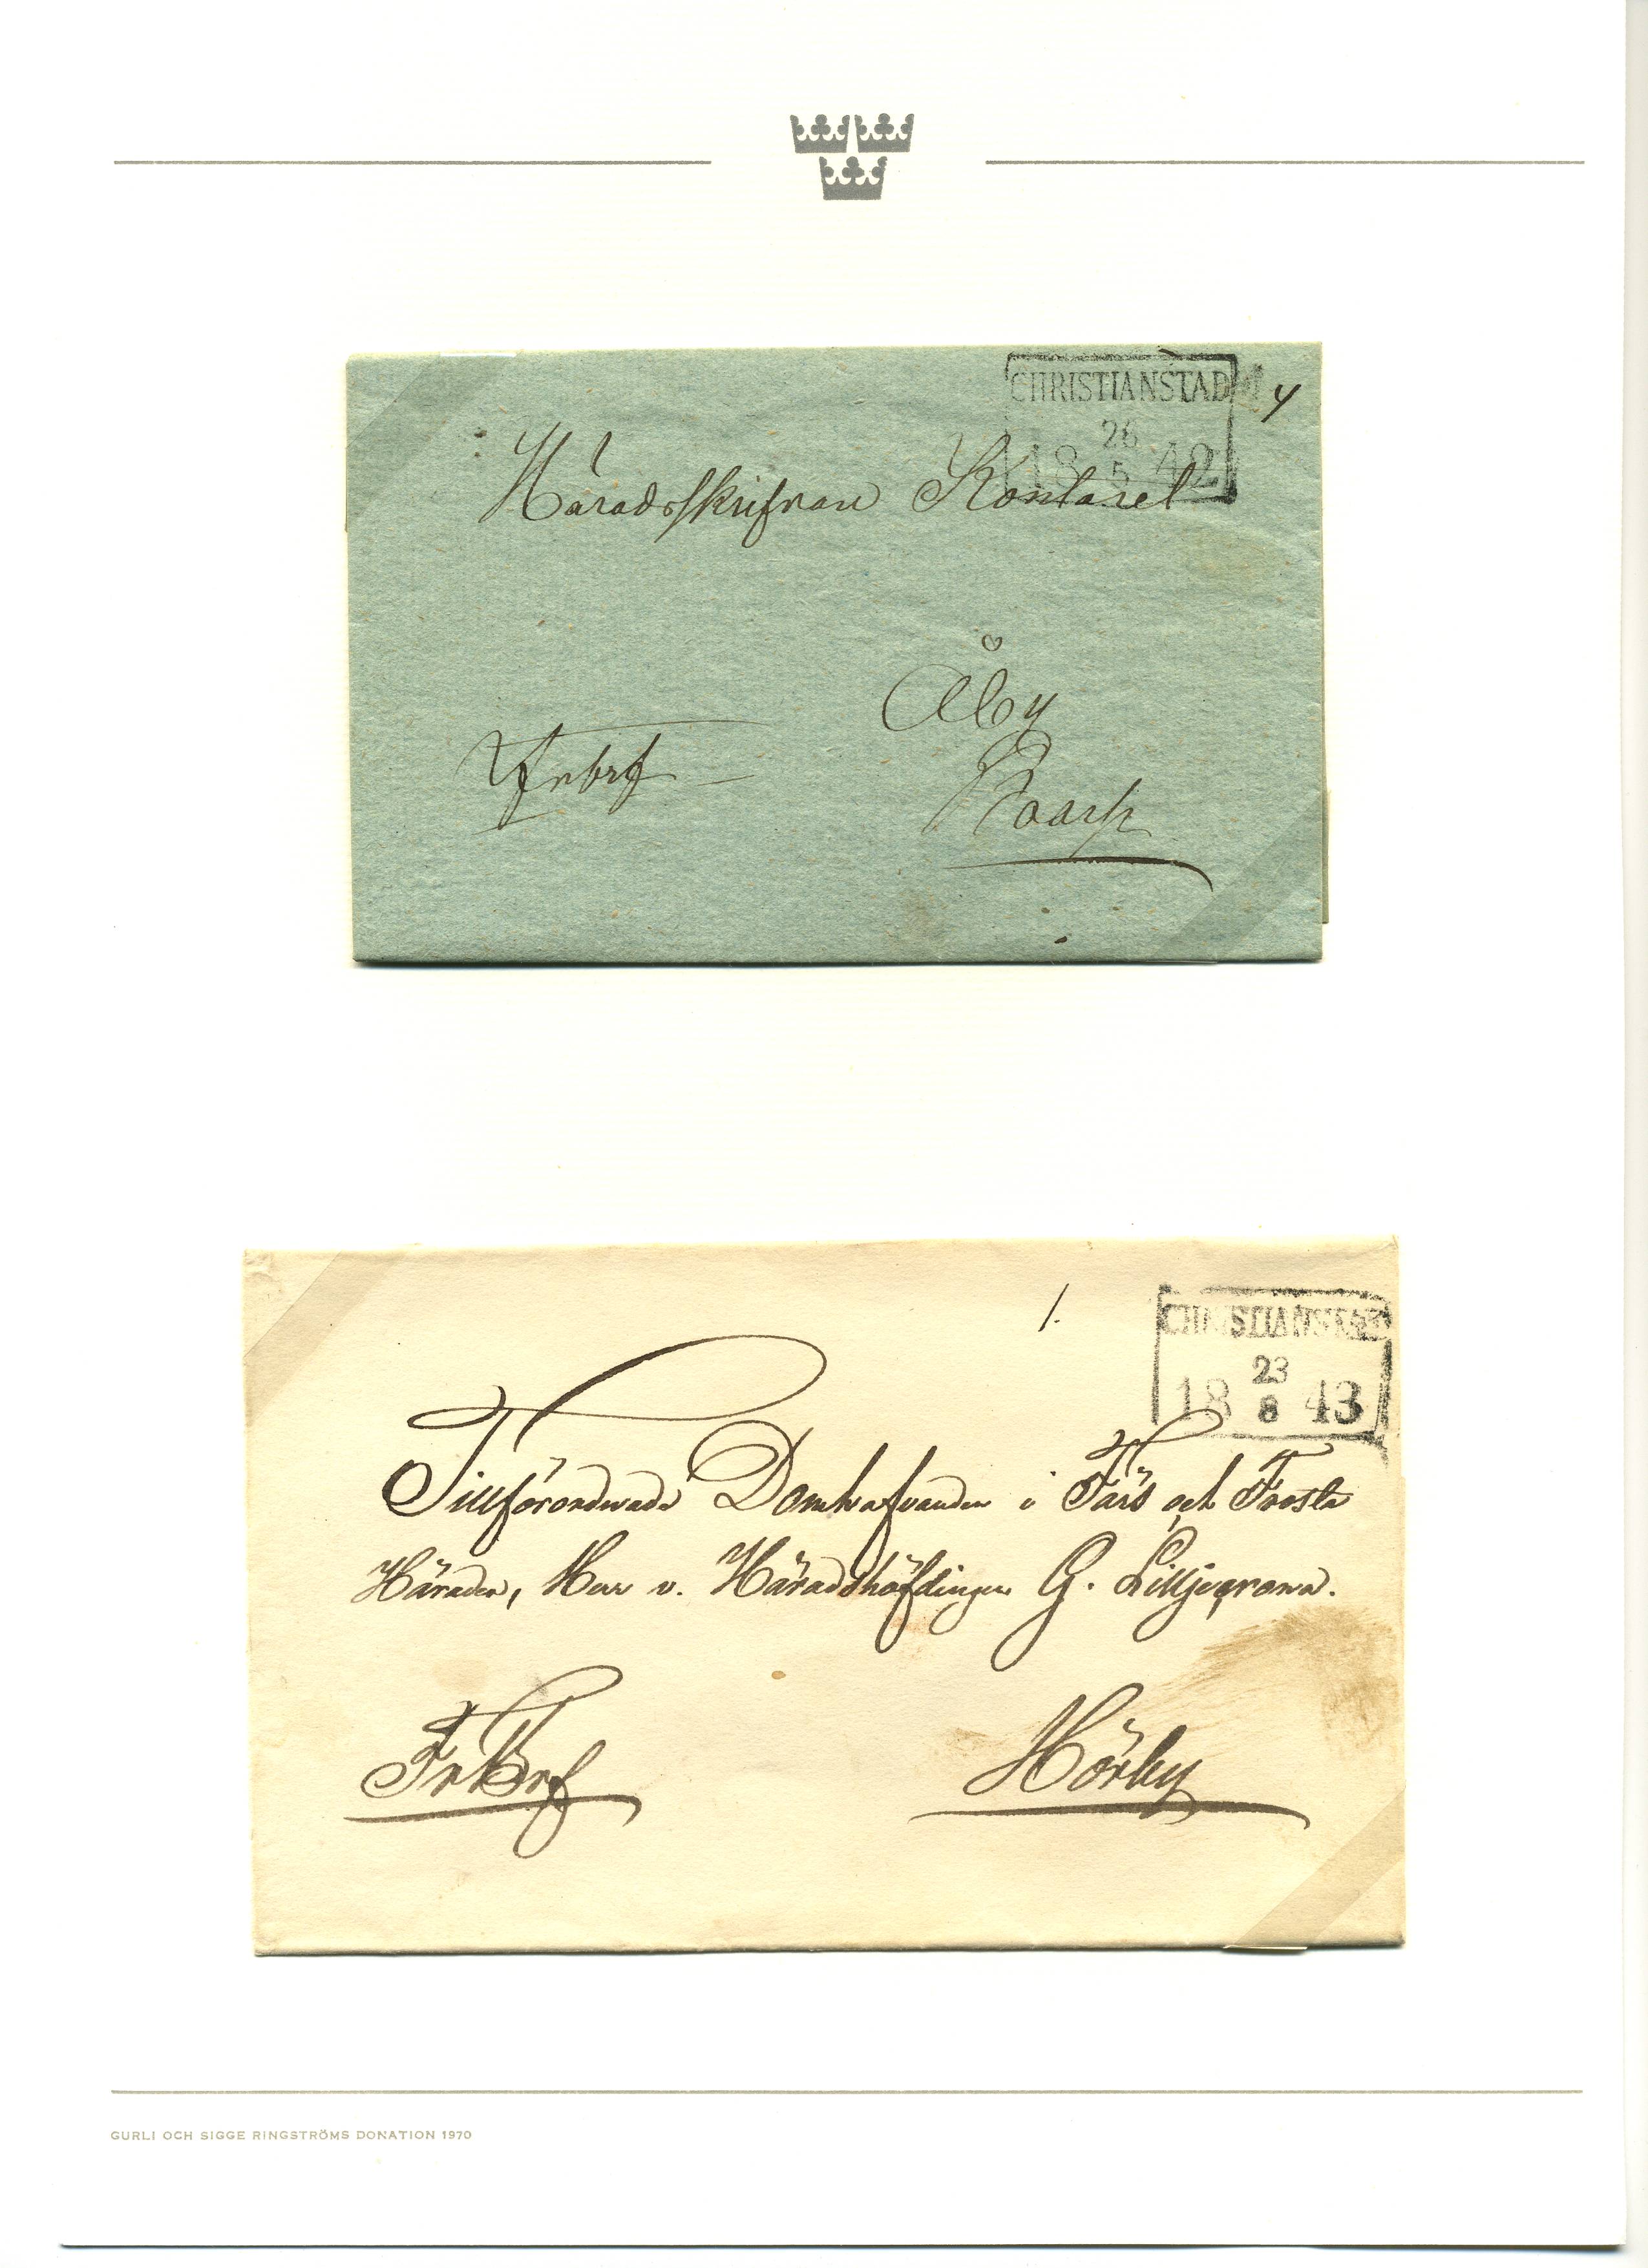 CHRISTIANSTAD
26
18 5 42
4
Häradsskrifvare Kontoret
Åby
Frbrf
1.
CHRISTIANSTAD
23
18 8 43
Tillförordnade Domhafvanden i Färs och Frosta
Härader, Herr v. Häradshöfdingen G. Liljegrano.
FrBrf
Hörby
GURLI OCH SIGGE RINGSTRÖMS DONATION 1970